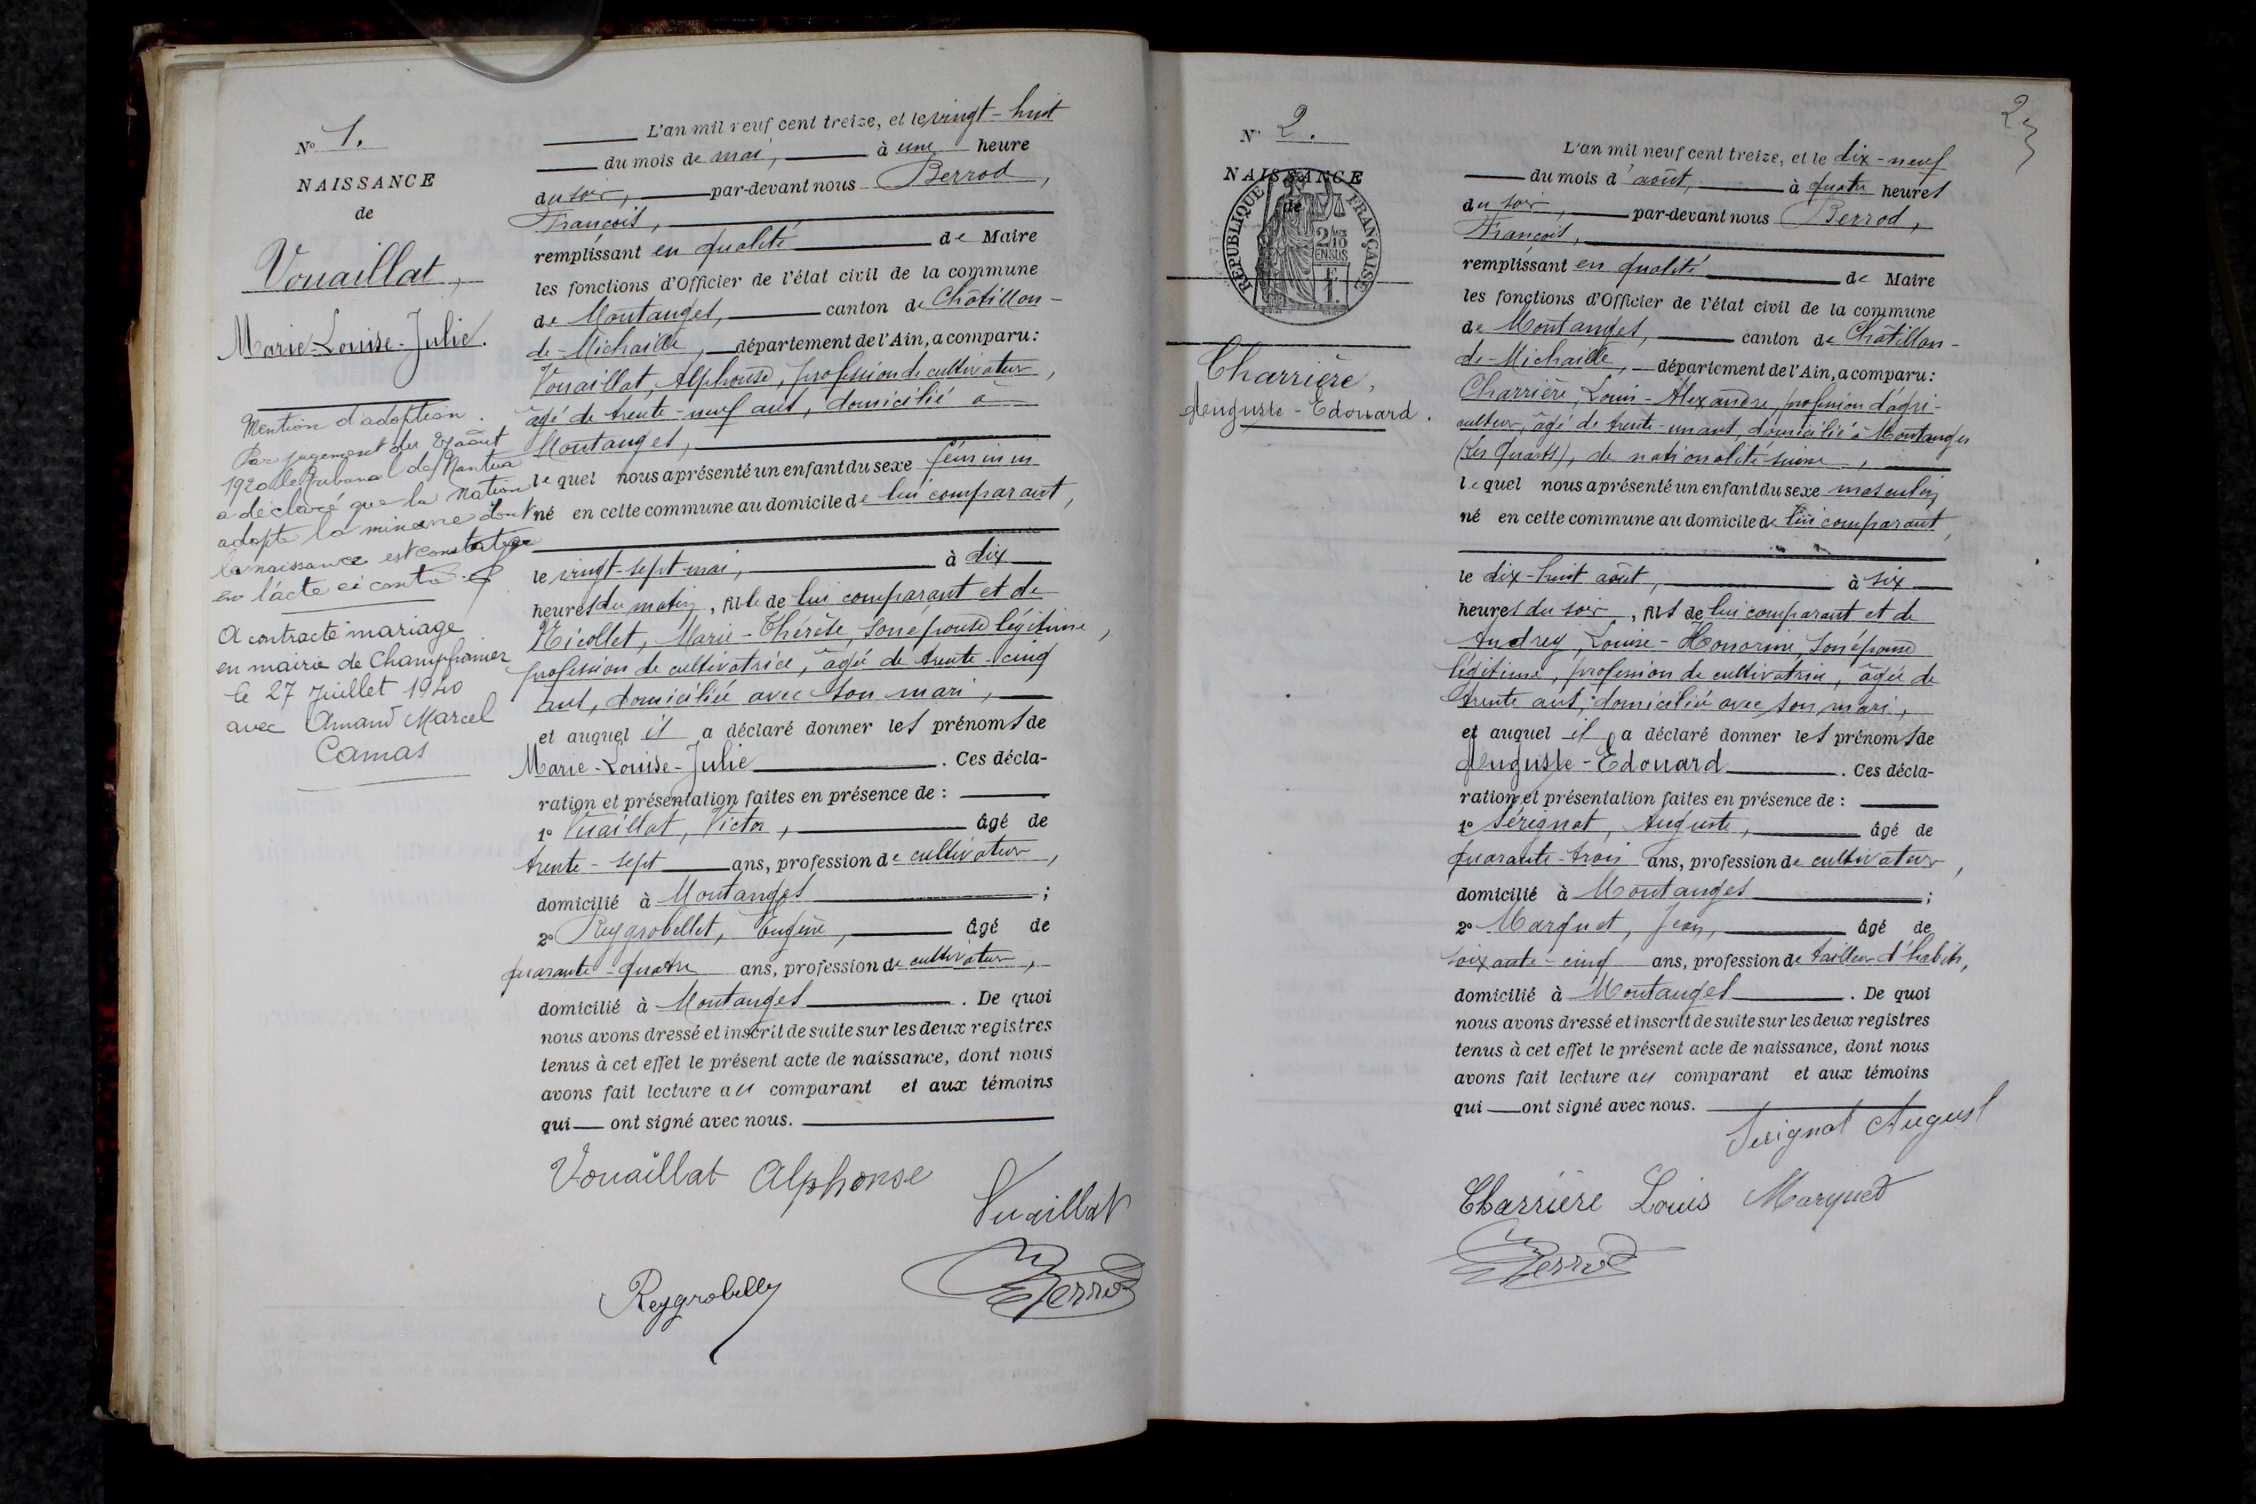 N° 1.
NAISSANCE
de
Vouaillat,
Marie-Louise-Julie.
Mention d'adoption.
Par jugement du 27 août
1920 le Tribunal de Nantua
a déclaré que la Nation
adopte la mineure dont
la naissance est constatée
en l'acte ci contre.
A contracté mariage
en mairie de Champfromier
le 27 Juillet 1940
avec Amand Marcel
Camas
L'an mil neuf cent treize, et le vingt-huit
du mois de mai, à une heure
du soir, par-devant nous Berrod,
François,
remplissant en qualité de Maire
les fonctions d'Officier de l'état civil de la commune
de Montanges, canton de Châtillon-
de-Michaille, département de l'Ain, a comparu:
Vouaillat, Alphonse, profession de cultivateur,
âgé de trente-neuf ans, domicilié à
Montanges,
lequel nous a présenté un enfant du sexe féminin
né en cette commune au domicile de lui comparant,
le vingt-sept mai, à dix
heures du matin, fille de lui comparant et de
Nicollet, Marie-Thérèse, son épouse légitime,
profession de cultivatrice, âgée de trente-cinq
ans, domiciliée avec son mari,
et auquel il a déclaré donner les prénoms de
Marie-Louise-Julie. Ces décla-
ration et présentation faites en présence de :
1° Vuaillat, Victor, âgé de
trente-sept ans, profession de cultivateur,
domicilié à Montanges ;
2° Reygrobellet, Eugène, âgé de
quarante-quatre ans, profession de cultivateur,
domicilié à Montanges. De quoi
nous avons dressé et inscrit de suite sur les deux registres
tenus à cet effet le présent acte de naissance, dont nous
avons fait lecture au comparant et aux témoins
qui ont signé avec nous.
Vouaillat Alphonse
Vuaillat
Berrod
2
N° 2.
NAISSANCE
de
RÉPUBLIQUE FRANÇAISE
2/10
EN SUS
Charrière,
Auguste-Edouard.
L'an mil neuf cent treize, et le dix-neuf
du mois d'août, à quatre heures
du soir, par-devant nous Berrod,
François,
remplissant en qualité de Maire
les fonctions d'Officier de l'état civil de la commune
de Montanges, canton de Châtillon-
de-Michaille, département de l'Ain, a comparu:
Charrière, Louis-Alexandre, profession d'agri-
culteur, âgé de trente-un ans, domicilié à Montanges
(Les Quarts), de nationalité suisse,
lequel nous a présenté un enfant du sexe masculin
né en cette commune au domicile de lui comparant,
le dix-huit août, à six
heures du soir, fils de lui comparant et de
Audrey, Louise-Honorine, son épouse
légitime, profession de cultivatrice, âgée de
trente ans, domiciliée avec son mari,
et auquel il a déclaré donner les prénoms de
Auguste-Edouard. Ces décla-
ration et présentation faites en présence de :
1° Sérignat, Auguste, âgé de
quarante-trois ans, profession de cultivateur,
domicilié à Montanges ;
2° Marquet, Jean, âgé de
soixante-cinq ans, profession de tailleur d'habits,
domicilié à Montanges. De quoi
nous avons dressé et inscrit de suite sur les deux registres
tenus à cet effet le présent acte de naissance, dont nous
avons fait lecture au comparant et aux témoins
qui ont signé avec nous.
Serignat August
Charrière Louis Marquet
Berrod